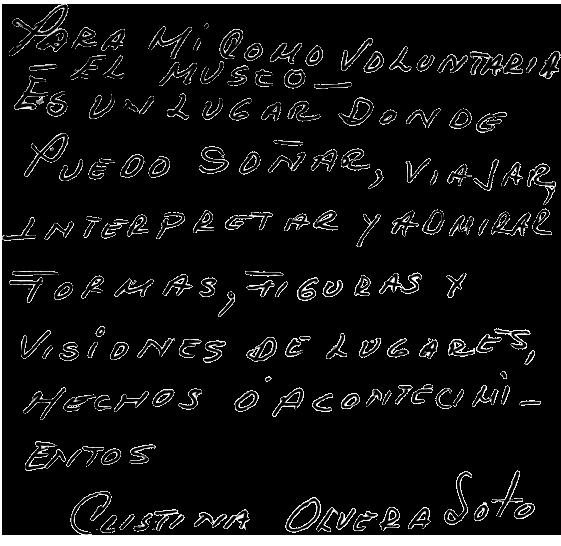 PARA MI COMO VOLUNTARIA
EL MUSEO—
ES UN LUGAR DONDE
PUEDO SOÑAR, VIAJAR,
INTERPRETAR Y ADMIRAR
FORMAS, FIGURAS Y
VISIONES DE LUGARES,
HECHOS O ACONTECIMI-
ENTOS
CRISTINA OLVERA SOTO